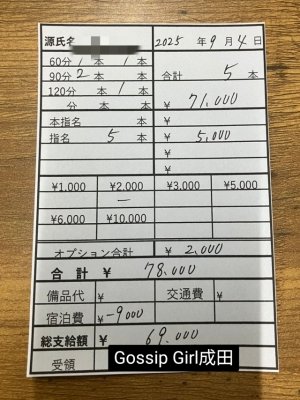 源氏名
2025年9月4日
60分 1本 1本
90分 2本
合計 5本
120分 本 1本
分 本 本
¥ 71,000
本指名 本
¥
指名 5本
¥ 5,000
¥
¥
¥1,000 ¥2,000 ¥3,000 ¥5,000
一
¥6,000 ¥10,000
オプション合計 ¥ 2,000
合計 ¥ 78,000
備品代 ¥ 交通費 ¥
宿泊費 ¥-9000 ¥
総支給額 ¥ 69,000
受領
Gossip Girl成田